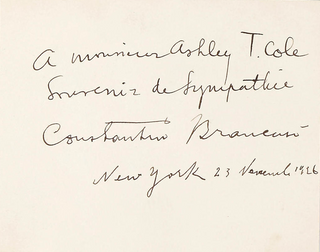 A monsieur Ashley T. Cole
Souvenir de Sympathie
Constantin Brancusi
New York 23 Novembr 1926